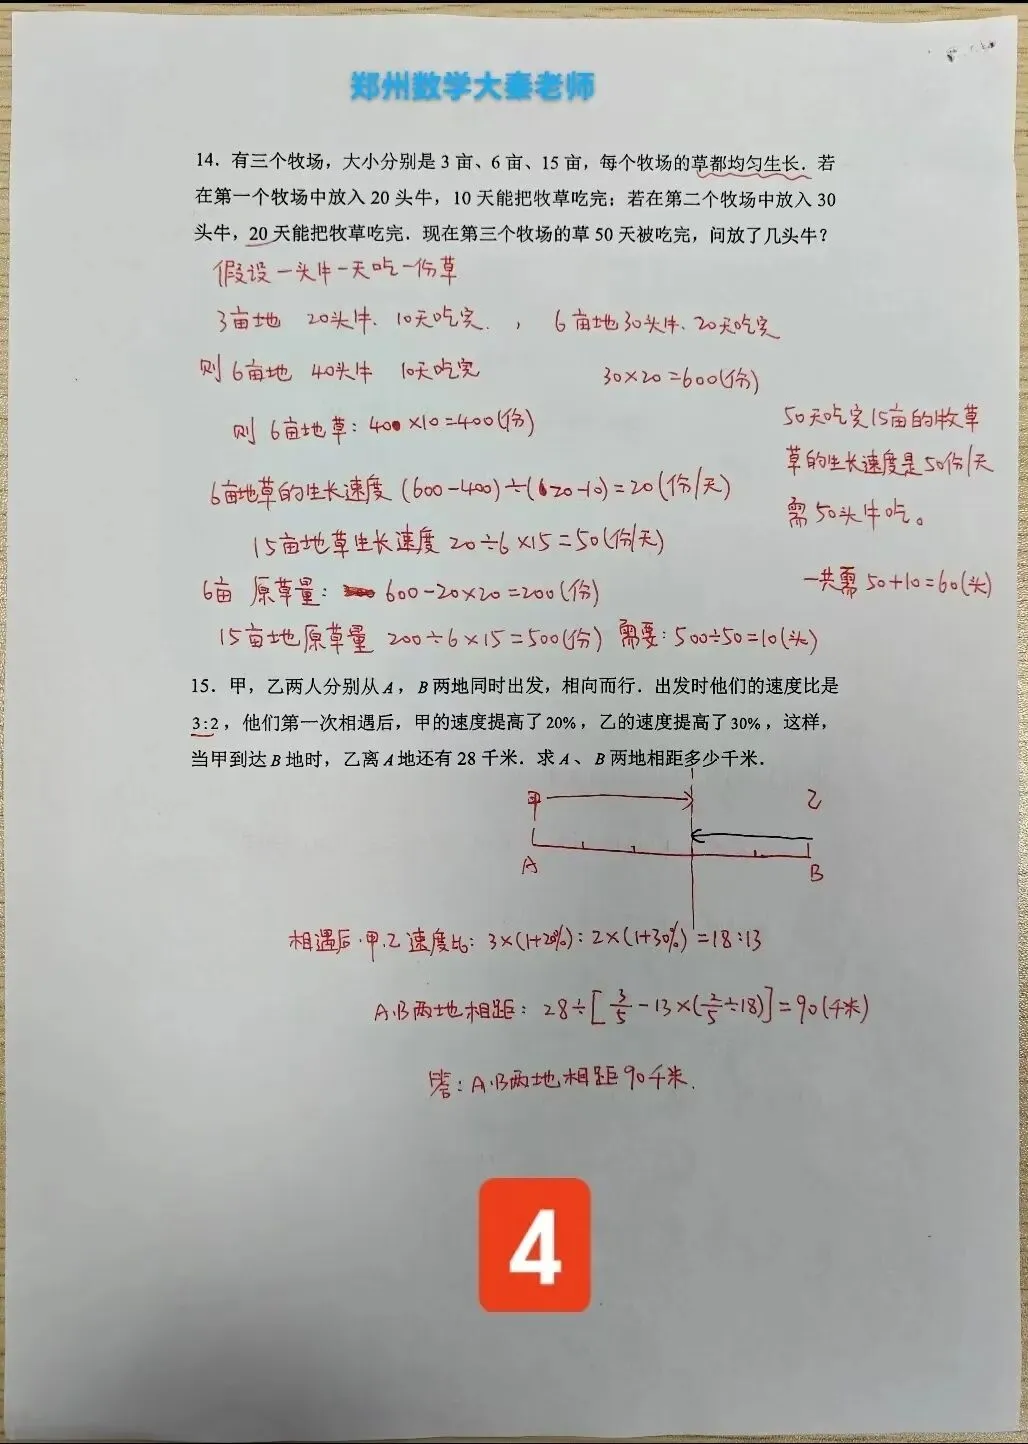 郑州数学大秦老师
14．有三个牧场，大小分别是 3 亩、6 亩、15 亩，每个牧场的草都均匀生长．若
在第一个牧场中放入 20 头牛，10 天能把牧草吃完；若在第二个牧场中放入 30
头牛，20 天能把牧草吃完．现在第三个牧场的草 50 天被吃完，问放了几头牛？
假设一头牛一天吃一份草
3亩地 20头牛、10天吃完．， 6亩地30头牛、20天吃完
则 6亩地 40头牛 10天吃完 30×20=600(份)
则 6亩地草：40×10=400(份)
6亩地草的生长速度 (600-400)÷(20-10)=20(份/天)
15亩地草生长速度 20÷6×15=50(份/天)
6亩 原草量： 600-20×20=200(份)
15亩地原草量 200÷6×15=500(份) 需要：500÷50=10(头)
50天吃完15亩的牧草
草的生长速度是50份/天
需50头牛吃。
一共需 50+10=60(头)
15．甲，乙两人分别从 A，B 两地同时出发，相向而行．出发时他们的速度比是
3:2，他们第一次相遇后，甲的速度提高了20%，乙的速度提高了30%，这样，
当甲到达 B 地时，乙离 A 地还有 28 千米．求 A、B 两地相距多少千米．
甲 乙
A B
相遇后.甲.乙速度比：3×(1+20%)：2×(1+30%)=18:13
A.B两地相距：28÷[3/5-13×(2/5÷18)]=90(千米)
答：A.B两地相距90千米.
4